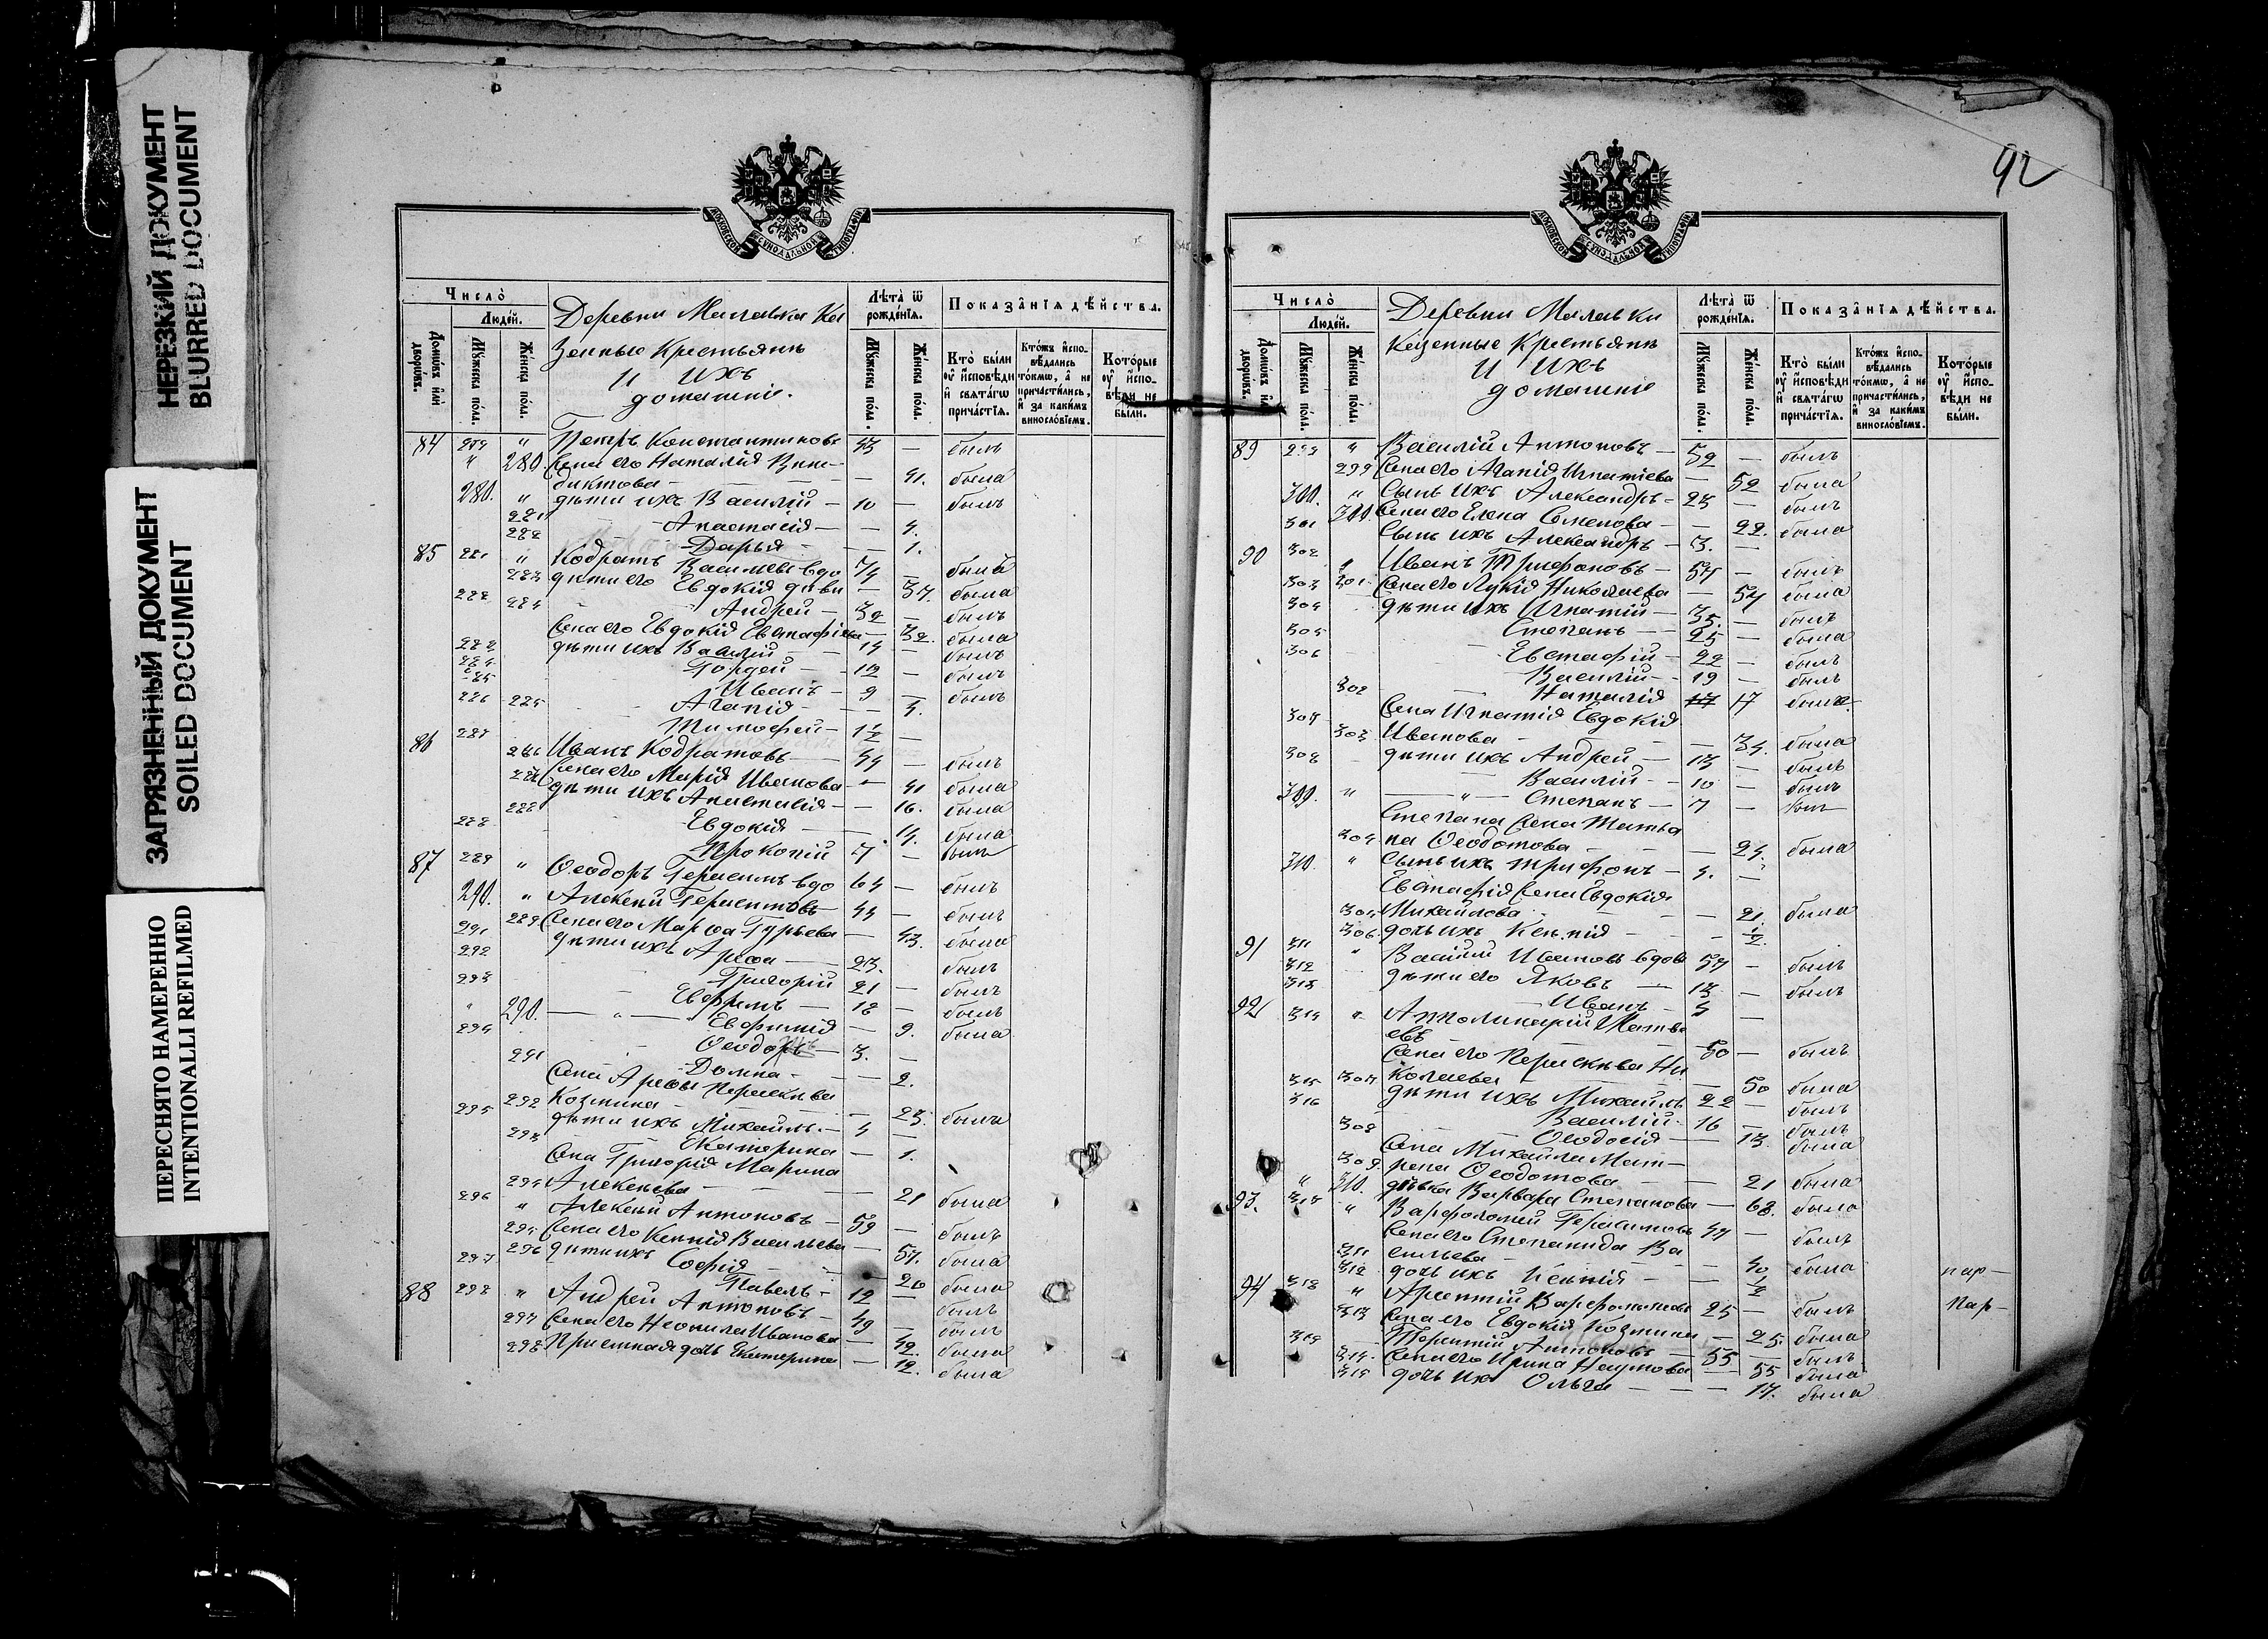 НЕРЕЗКИЙ ДОКУМЕНТ
BLURRED DOCUMENT
ЗАГРЯЗНЕННЫЙ ДОКУМЕНТ
SOILED DOCUMENT
ПЕРЕСНЯТО НАМЕРЕННО
INTENTIONALLI REFILMED
МОСКОВСКОЙ СѴНОДАЛЬНОЙ ТИПОГРАФІИ
Число̀
Людей.
Домѡвъ и҆лѝ дворѡвъ.
Мꙋ́жеска по́ла.
Же́нска по́ла.
Деревни Малавка Ка
зенные Крестьяне
и ихъ
домашніе.
Лѣ́та ѿ рожде́нїѧ.
Мꙋ́жеска по́ла.
Же́нска по́ла.
Показа̑нїѧ дѣ́йства.
Кто̀ бы́ли оу҆ и҆сповѣ́ди и҆ свѧта́гѡ прича́стїѧ.
Кто́жъ и҆сповѣ́дались то́кмѡ, а҆ не причасти́лись, и҆ за каки́мъ винословїемъ.
Кото́рые оу҆ и҆сповѣ́ди не бы́ли.
84 279 " Петръ Константиновъ 43 — былъ
" 280. Жена его Наталія Вене-
диктова — — 41. была
280. " дѣти ихъ Василій — 10 — былъ
281 Анастасія — — 4.
282 Дарья — — 1.
85 281 " Кодратъ Васильевъ вдо 74 — былъ
283 дѣти его Евдокія дѣви — 37. была
282 Андрей — 32 — былъ
284 Жена его Евдокія Евстафіева — 32. была
дѣти ихъ Василій — 14 — былъ
Гордей — 12 — былъ
Иванъ — 9 — былъ
286 285 Агапія — — 4.
287 Тимофей — 1½ —
86 Иванъ Кодратовъ — 44 — былъ
Жена его Марія Иванова — 41 была
дѣти ихъ Анастасія — — 16. была
288 Евдокія — — 14. была
Прокопій 7 — былъ
87 289 " Ѳеодоръ Герасимъ вдо 64 — былъ
290. " Алексей Герасимовъ 44 — былъ
289 Жена его Марѳа Гурьева — 43. была
291 дѣти ихъ Арефа — 23. — былъ
292 Григорій 21 — былъ
293 Ефремъ — 18 — былъ
" 290. — " — Евфимія — 9. была
294 Ѳеодоръ — 3. —
291 Домна — — 2.
Жена Арефы Параскева
292 Козмина — — 23. была
295 дѣти ихъ Михаилъ — 4 —
293 Екатерина — 1.
Жена Григорія Марина
294 Алексеева — — 21 была
296 " Алексей Антоновъ — 59 — былъ
295 Жена его Ксенія Васильева — 57. была
296 дѣти ихъ Софія — — 20 была
297 Павелъ — 12 — былъ
88 298 " Андрей Антоновъ — 49 — былъ
297 Жена его Неонила Иванова — 42. была
298 Приемная дочь Екатерина — 12. была
92
МОСКОВСКОЙ СѴНОДАЛЬНОЙ ТИПОГРАФІИ
Число̀
Людей.
Домѡвъ и҆лѝ дворѡвъ.
Мꙋ́жеска по́ла.
Же́нска по́ла.
Деревни Малавки
Казенные Крестьяне
и ихъ
домашніе
Лѣ́та ѿ рожде́нїѧ.
Мꙋ́жеска по́ла.
Же́нска по́ла.
Показа̑нїѧ дѣ́йства.
Кто̀ бы́ли оу҆ и҆сповѣ́ди и҆ свѧта́гѡ прича́стїѧ.
Кто́жъ и҆сповѣ́дались то́кмѡ, а҆ не причасти́лись, и҆ за каки́мъ винословїемъ.
Кото́рые оу҆ и҆сповѣ́ди не бы́ли.
89 299 " Василій Антоновъ — 52 — былъ
299 Жена его Агапія Игнатіева — 52 была
300. " Сынъ ихъ Александръ — 23 — былъ
300. Жена его Елена Семенова — — 22. была
301 Сынъ ихъ Александръ — 3. —
90 302 Иванъ Трифоновъ — 57 — былъ
303 301 Жена его Лукія Николаева — 57 была
304 дѣти ихъ Игнатій — 35. — былъ
305 Степанъ — 25 — была
306 Евстафій — 22 — былъ
Василій — 19 — былъ
302 Наталія 17 была
Жена Игнатія Евдокія
307 303 Иванова — — 34. была
308 дѣти ихъ Андрей — 13 — былъ
Василій — 10 — былъ
309. " — " — Степанъ — 7 — был
Степана Жена Татья
304 на Ѳеодотова — — 24. была
310 " Сынъ ихъ Трифонъ — 4. —
Евстафія Жена Евдокія
305 Михайлова — — 21. была
306 дочь ихъ Ксенія — — ½.
91 311 " Василій Ивановъ вдов 57 — былъ
312 дѣти его Яковъ — 13 — былъ
313 Иванъ — 3 —
92 314 " Апполинарій Матве
евъ 50 — былъ
Жена его Параскева Ни
307 колаева — — 50 была
315 дѣти ихъ Михаилъ 22 — былъ
316 Василій — 16 — былъ
308 Ѳеодосія — — 13. была
Жена Михаила Мат-
309 рена Ѳеодотова — — 21 была
" 310. дѣвка Варвара Степанова — 68. была
93. 317 " Варфоломей Герасимовъ 47 — былъ
Жена его Степанида Ва
311 сильева — — 40 была
312 дочь ихъ Ксенія — — ½ пар—
94 318 " Арсентій Варфоломеевъ 25 — былъ пар—
313 Жена его Евдокія Козмина — 25. была
319 Терентій Антоновъ — 55 — былъ
314. Жена его Ирина Наумова — 55 была
315 дочь ихъ Ольга — — 17. была